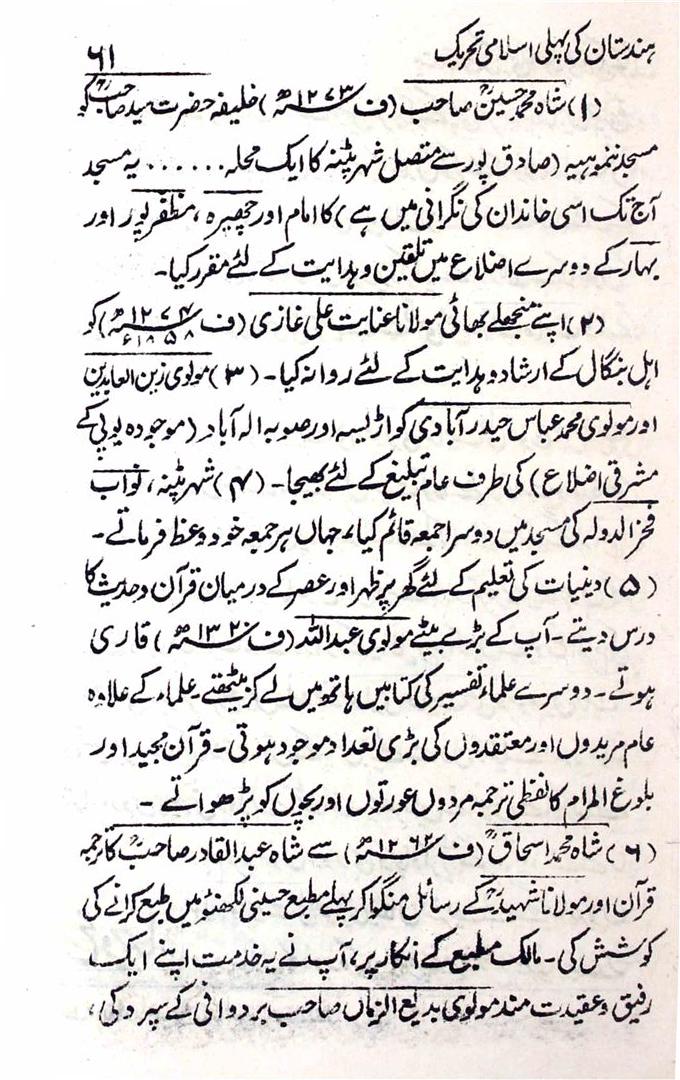 ہندستان کی پہلی اسلامی تحریک ۶۱
(۱) شاہ محمد حسینؒ صاحب (ف ۱۲۷۳ھ) خلیفہ حضرت سید صاحبؒ کو
مسجد ننموہیہ (صادق پور سے متصل شہر پٹنہ کا ایک محلہ...... یہ مسجد
آج تک اسی خاندان کی نگرانی میں ہے) کا امام اور چھپرہ، مظفر پور اور
بہار کے دوسرے اضلاع میں تلقین و ہدایت کے لئے مقرر کیا۔
(۲) اپنے منجھلے بھائی مولانا عنایت علی غازی (ف ۱۲۷۴ھ ۱۸۵۸ء) کو
اہل بنگال کے ارشاد و ہدایت کے لئے روانہ کیا۔ (۳) مولوی زین العابدین
اور مولوی محمد عباس حیدر آبادی کو اڑیسہ اور صوبہ الہ آباد (موجودہ یوپی کے
مشرقی اضلاع) کی طرف عام تبلیغ کے لئے بھیجا۔ (۴) شہر پٹنہ، نواب
فخر الدولہ کی مسجد میں دوسرا جمعہ قائم کیا، جہاں ہر جمعہ خود وعظ فرماتے۔
(۵) دینیات کی تعلیم کے لئے گھر پر ظہر اور عصر کے درمیان قرآن و حدیث کا
درس دیتے۔ آپ کے بڑے بیٹے مولوی عبداللہ (ف ۱۳۲۰ھ) قاری
ہوتے۔ دوسرے علماء تفسیر کی کتابیں ہاتھ میں لے کر بیٹھتے۔ علماء کے علاوہ
عام مریدوں اور معتقدوں کی بڑی تعداد موجود ہوتی۔ قرآن مجید اور
بلوغ المرام کا لفظی ترجمہ مردوں عورتوں اور بچوں کو پڑھواتے۔
(۶) شاہ محمد اسحاقؒ (ف ۱۲۶۲ھ) سے شاہ عبدالقادر صاحبؒ کا ترجمہ
قرآن اور مولانا شہیدؒ کے رسائل منگوا کر پہلے مطبع حسینی لکھنؤ میں طبع کرانے کی
کوشش کی۔ مالک مطبع کے انکار پر، آپ نے یہ خدمت اپنے ایک
رفیق و عقیدت مند مولوی بدیع الزماں صاحب بردوانی کے سپرد کی،